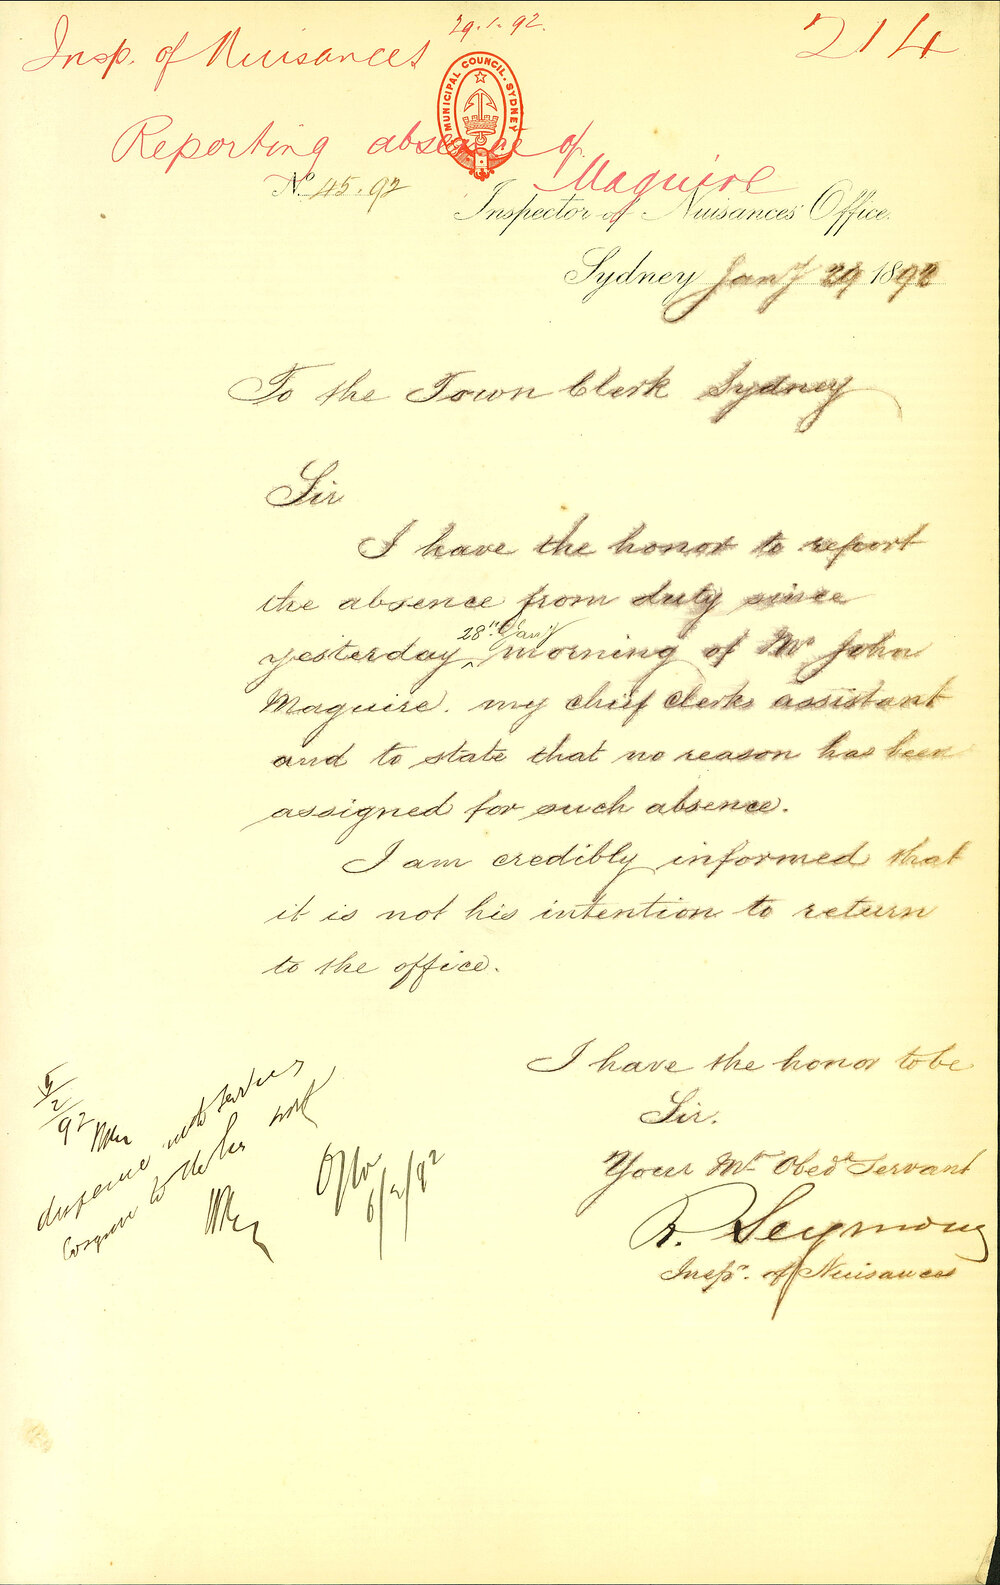 29.1.92.
Insp. of Nuisances
214
MUNICIPAL COUNCIL. SYDNEY
Reporting absence of
Maguire
No. 45.92
Inspector of Nuisances Office.
Sydney Jany 29 1892
To the Town Clerk Sydney
Sir
I have the honor to report
the absence from duty since
28th Jany
yesterday ^ morning of Mr John
Maguire. my chief clerks assistant
and to state that no reason has been
assigned for such absence.
I am credibly informed that
it is not his intention to return
to the office.
I have the honor to be
Sir.
Your Mt Obedt Servant
R. Seymour
Inspr. of Nuisances
5/2/92
dispense with services
work
6/2/92